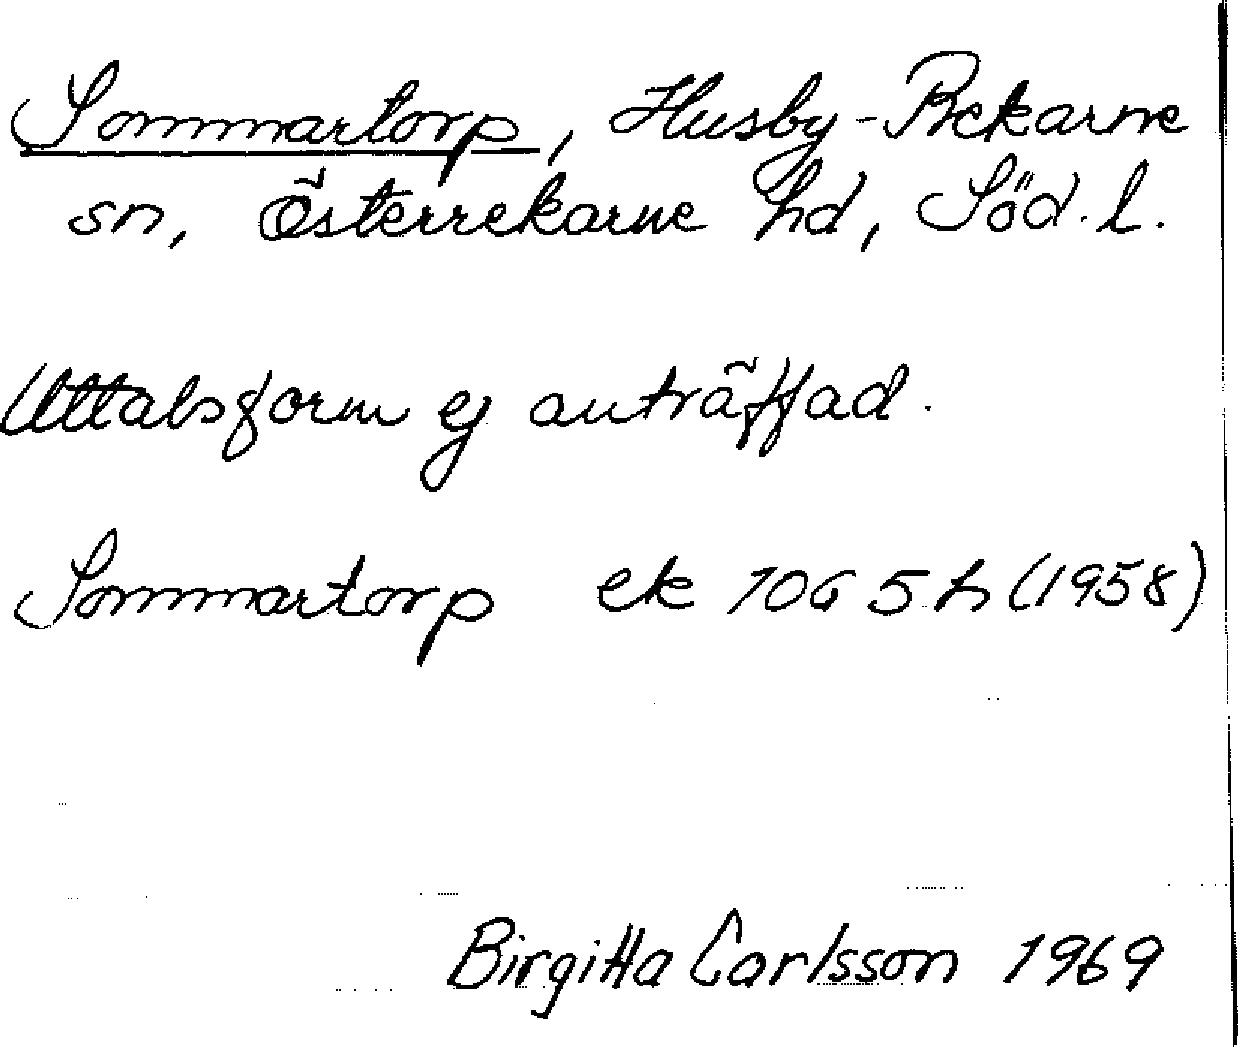 Sommartorp, Husby-Rekarne
sn, Österrekarne hd, Söd. l.
Uttalsform ej anträffad.
Sommartorp ek 10G 5h (1958)
Birgitta Carlsson 1969